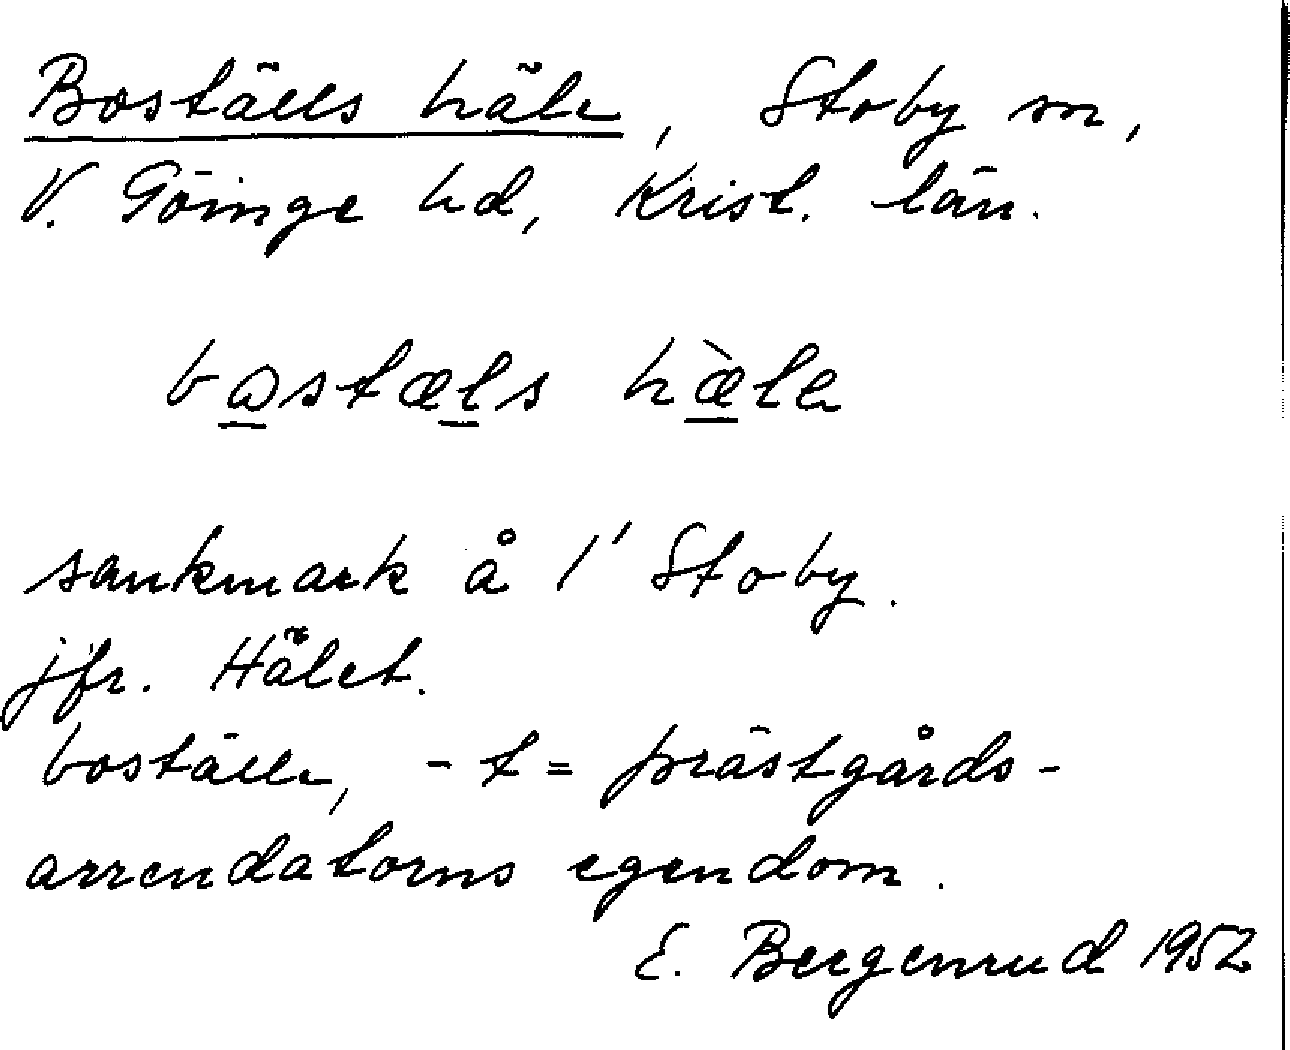 Boställs häle, Stoby sn,
V. Göinge hd, Krist. län.
bɷstæls hæ̀le
sankmark å 1' Stoby.
jfr. Hälet.
boställe, -t = prästgårds-
arrendatorns egendom.
E. Bergenrud 1952